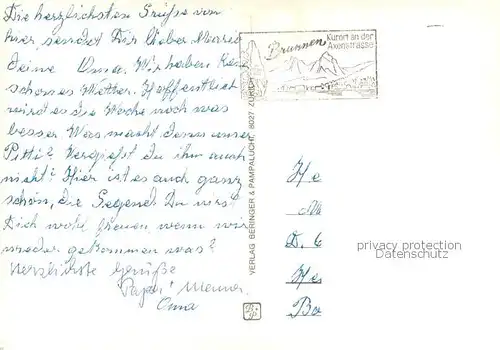 Die herzlichsten Grüße von
hier, sendet Dir lieber
Deine Oma. Wir haben kein
schönes Wetter. Hoffentlich
wird es die Woche noch was
besser. Was macht denn unser
Pitti? Vergießt du ihn auch
nicht? Hier ist es auch ganz
schön, die Gegend. Du wirst
Dich wohl freuen, wenn wir
wieder gekommen was?
Herzlichste Grüße
Oma
Brunnen
Kurort an der
Axenstrasse
VERLAG BERINGER & PAMPALUCHI, 8027 ZÜRICH
He
D. 6
He
Ba
privacy protection
Datenschutz